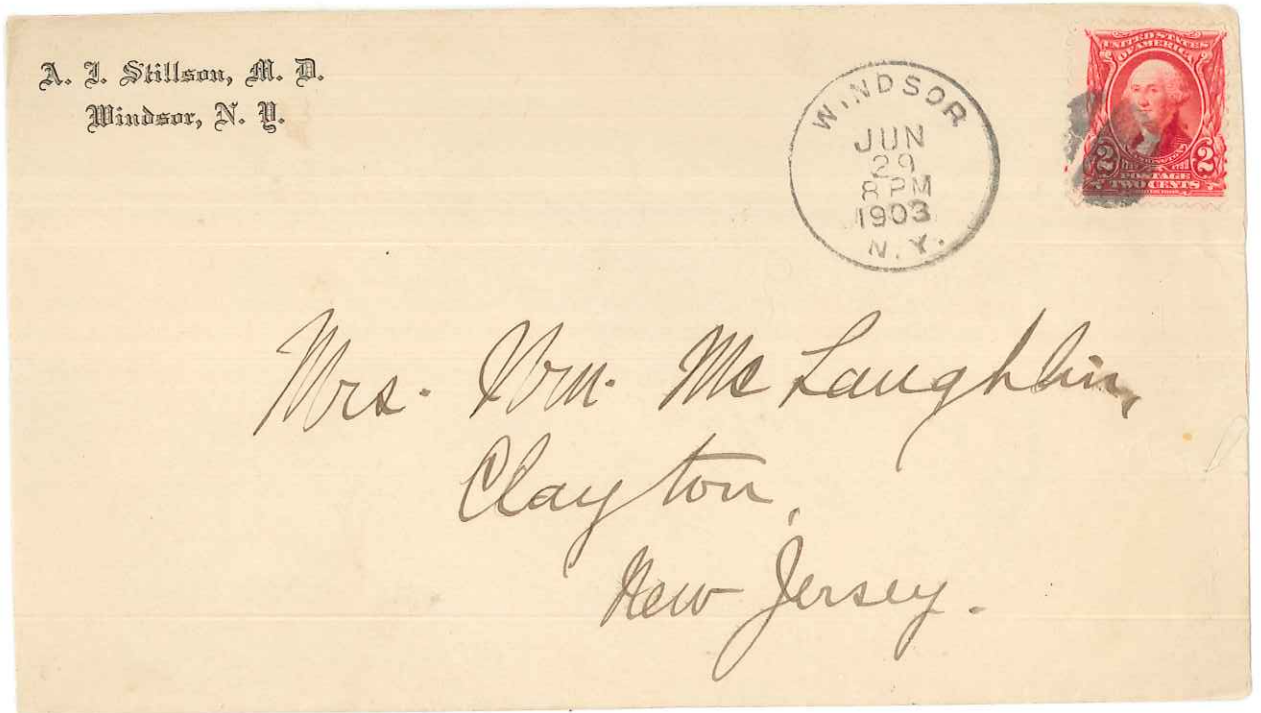 A. J. Stillson, M. D.
Windsor, N. Y.
WINDSOR
JUN
29
8 PM
1903
N.Y.
UNITED STATES
OF AMERICA
2 2
POSTAGE
TWO CENTS
Mrs. Wm. McLaughlin,
Clayton,
New Jersey.